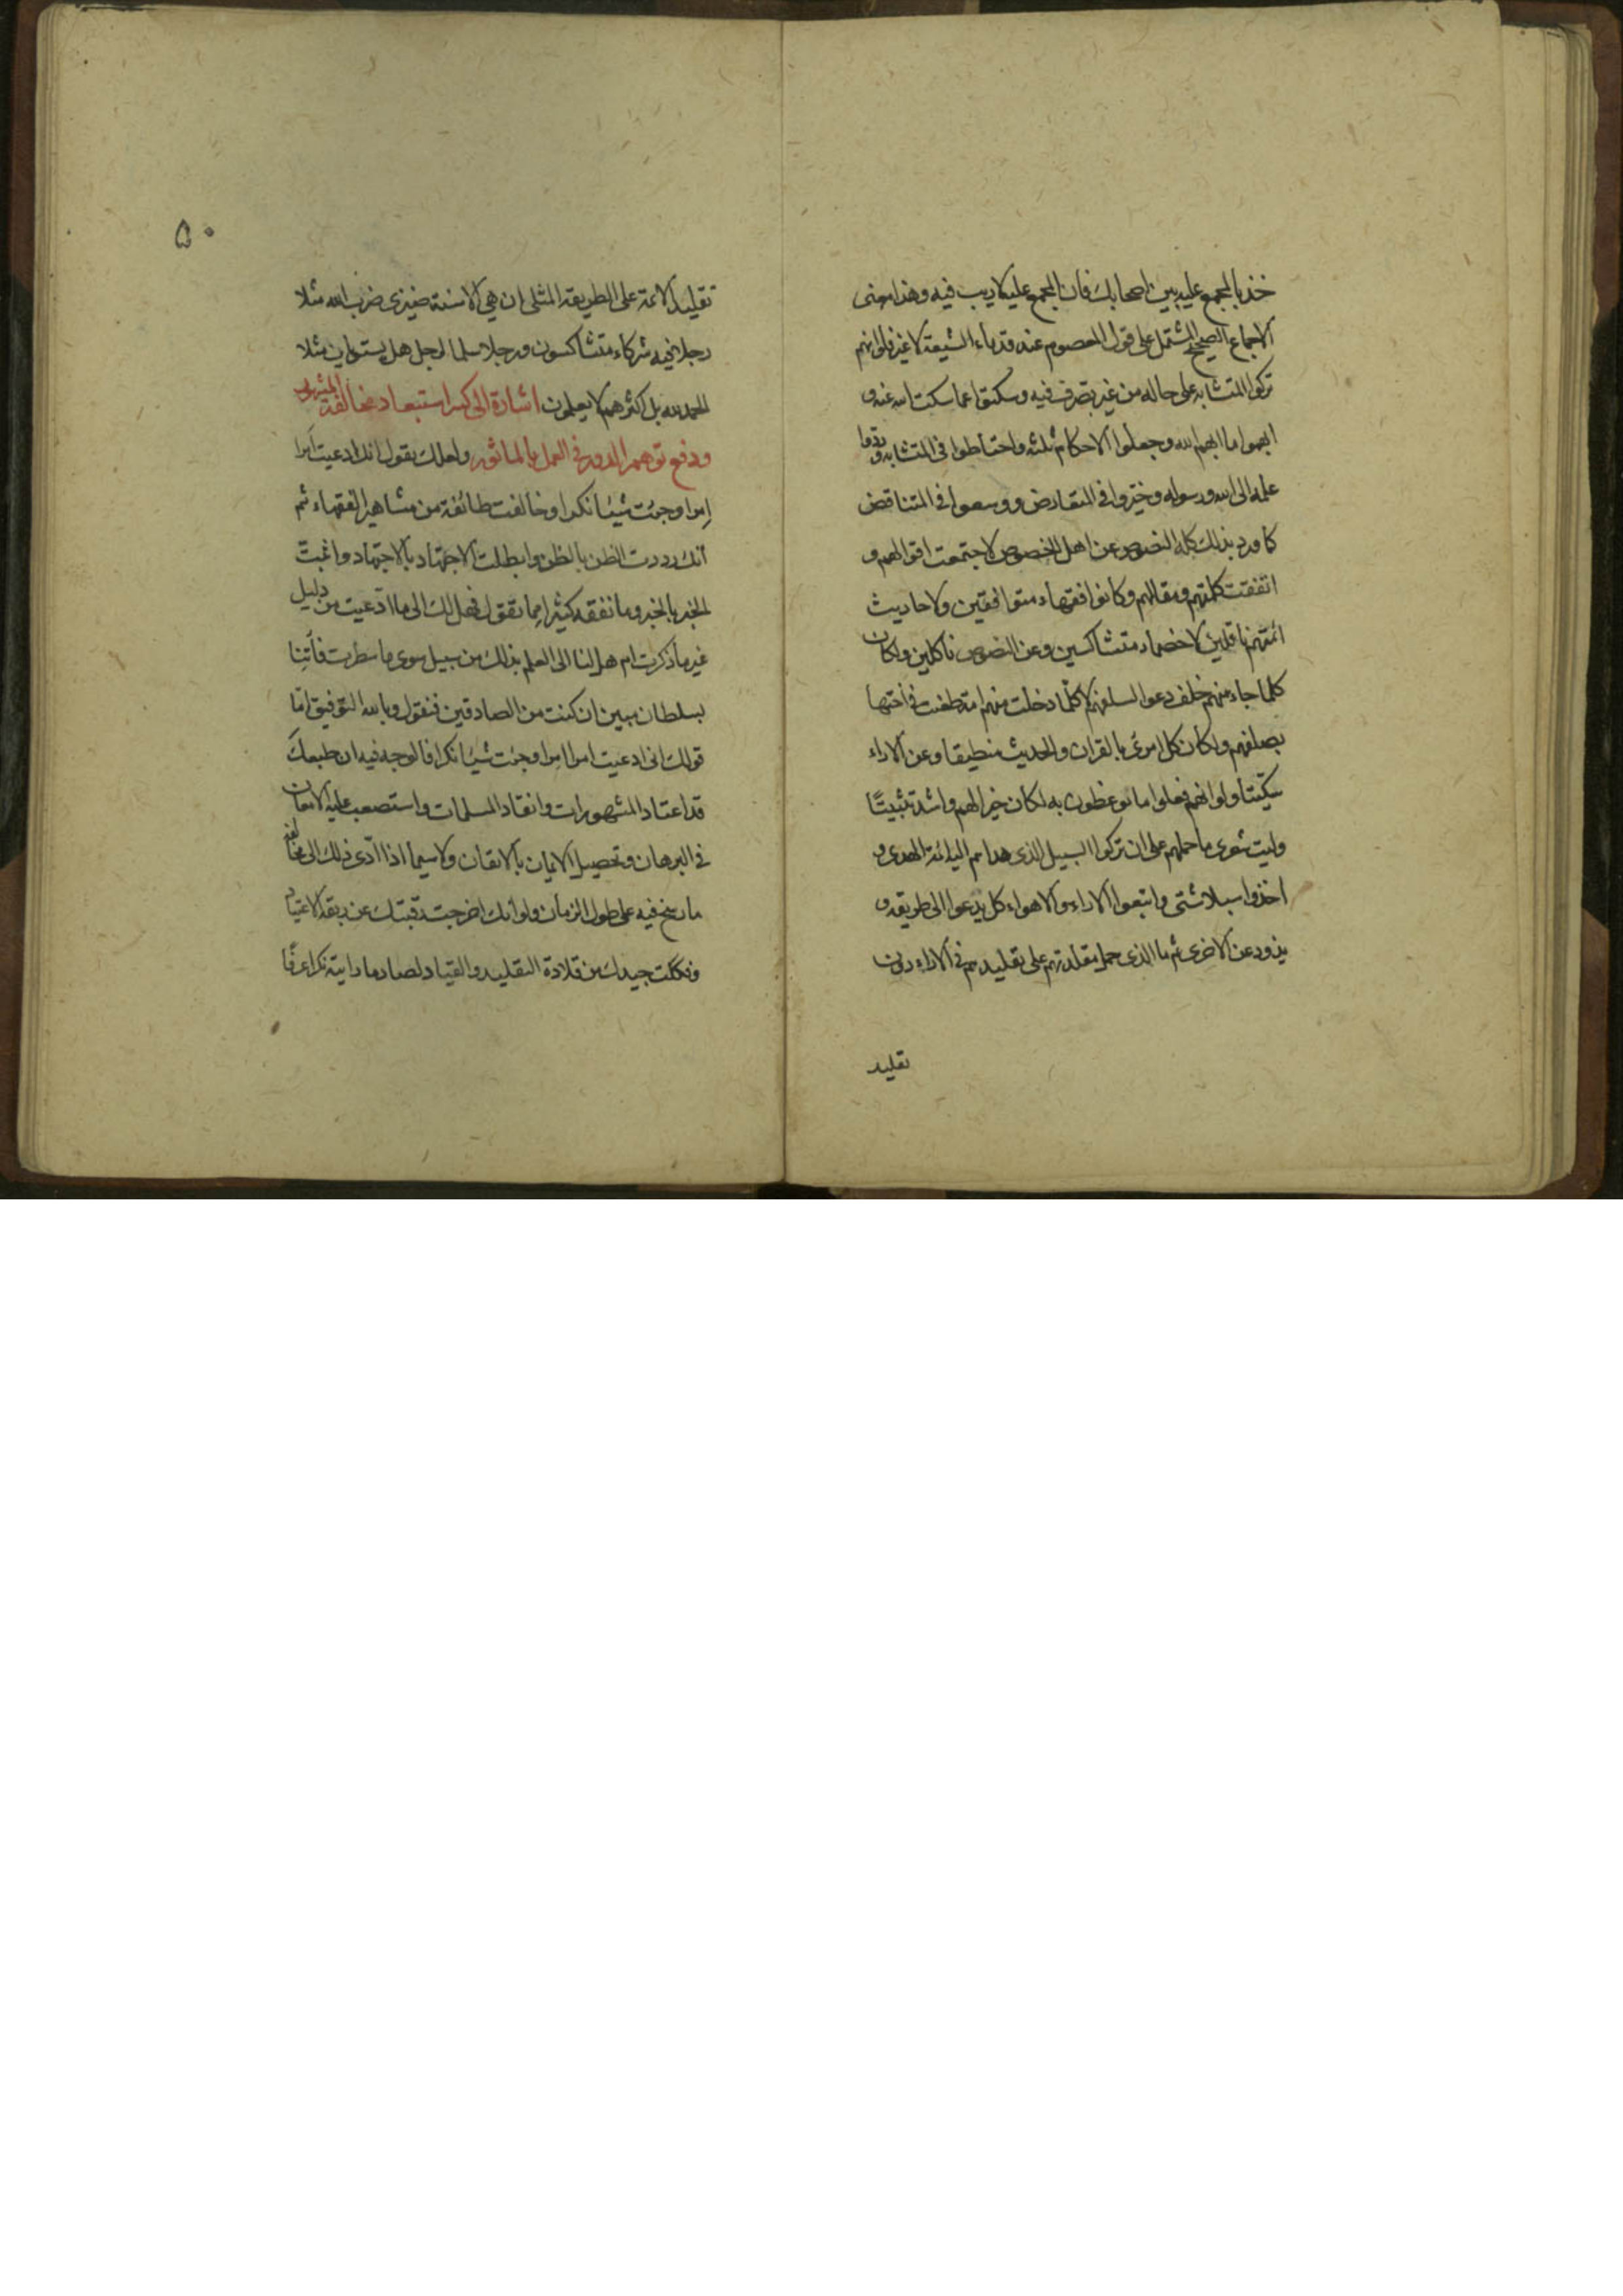 خذ بالمجمع عليه بين اصحابك فان المجمع عليه لا ريب فيه وهذا معنى
الاجماع الصحيح المشتمل على قول المعصوم عند قدماء الشيعة لا غير فلو انهم
تركوا المتشابه على حاله من غير تصرف فيه وسكتوا عما سكت الله عنه و
ابهموا ما ابهم الله وجعلوا الاحكام ثلثة واحتاطوا فى المتشابه وردوا
علمه الى الله ورسوله وخيروا فى المتعارض ووسعوا فى المتناقض
كما ورد بذلك كله النصوص عن اهل الخصوص لاجتمعت اقوالهم و
اتفقت كلمتهم ومقالهم وكانوا فقهاء متوافقين ولاحاديث
ائمتهم ناقلين لا خصماء متشاكسين وعن النصوص ناكلين ولكان
كلما جاء منهم خلف دعوا لسلفهم لا كلما دخلت منهم امة طعنت فى اختها
بصلفهم ولكان كل امرئ بالقران والحديث منطيقا وعن الاراء
سكيتا ولو انهم فعلوا ما يوعظون به لكان خيرا لهم واشد تثبيتًا
وليت شعرى ما حملهم على ان تركوا السبيل الذى هداهم اليه ائمة الهدى و
اخذوا سبلا شتى واتبعوا الاراء والاهواء كل يدعوا الى طريقه و
يذود عن الاخرى ثم ما الذى حمل مقلدتهم على تقليدهم فى الاراء دون
تقليد
۵۰
تقليد الائمة على الطريقة المثلى ان هي الا سنة ضيزى ضرب الله مثلا
رجلا فيه شركاء متشاكسون ورجلا سلما لرجل هل يستويان مثلا
الحمد لله بل اكثرهم لا يعلمون اشارة الى كسر استبعاد مخالفة المشهور
ودفع توهم الدور فى العمل بالماثور ولعلك تقول انك ادعيت امرا
إمرا وجئت شيئا نكرا وخالفت طائفة من مشاهير الفقهاء ثم
انك رددت الظن بالظن وابطلت الاجتهاد بالاجتهاد واثبت
الخبر بالخبر وما نفقه كثيرا مما تقول فهل لك الى ما ادّعيت من دليل
غير ما ذكرت ام هل لنا الى العلم بذلك من سبيل سوى ما سطرت فأتِنا
بسلطان مبين ان كنت من الصادقين فنقول وبالله التوفيق امّا
قولك انى ادعيت امرا إمرا وجئت شيئا نكرا فالوجه فيه ان طبعك
قد اعتاد المشهورات وانقاد المسلمات واستصعب عليه الامعان
فى البرهان وتحصيل الايمان بالايقان ولا سيما اذا ادّى ذلك الى مخالفة
ما رسخ فيه على طول الزمان ولو انك اخرجت رقبتك عن ربقة الاعتياد
وفككت جيدك من قلادة التقليد والقياد لصار ما رايته نكرا عرفًا